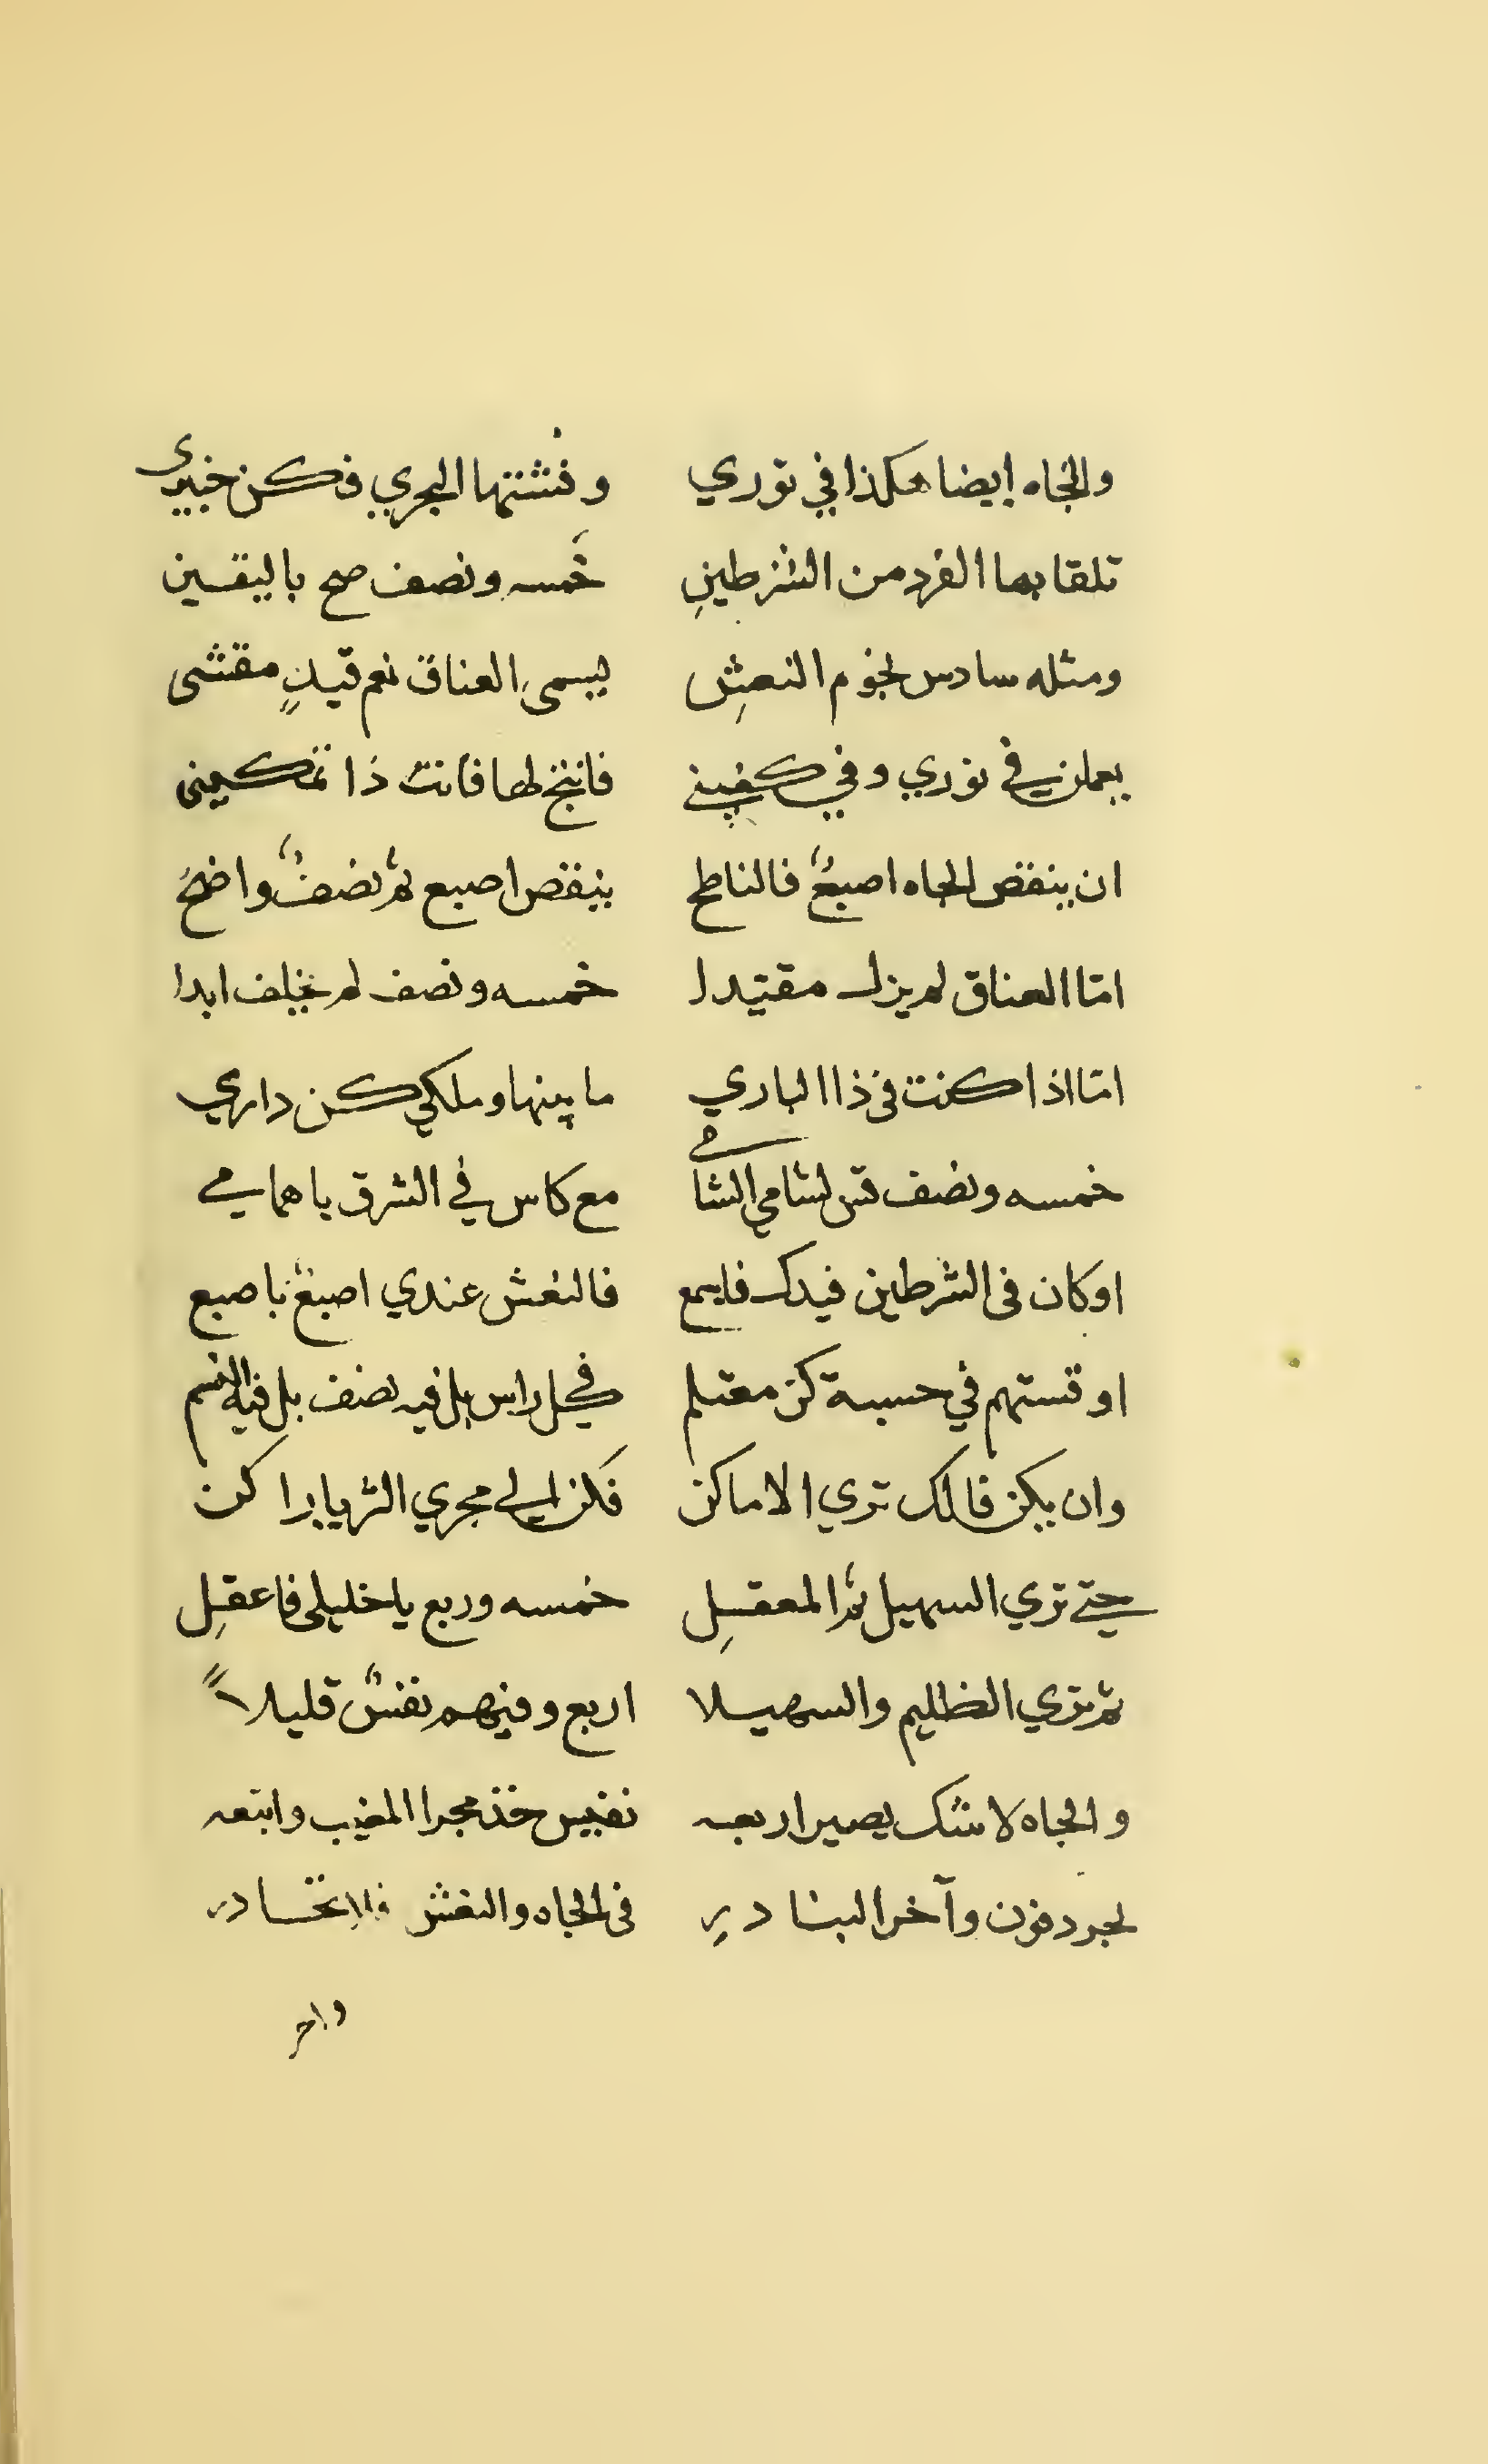 والجاه ايضا هكذا في توري وفشتها البحري فكن خبيري
تلقا بها الفرد من الشرطين خمسه ونصف صح باليقين
ومثله سادس نجوم النعش ليسمى العناق نعم قيد مقشى
يعملن في توري وفي كفيني فانتخ لها فانت ذا تمكيني
ان ينقص الجاه اصبع فالناطح ينقص اصبع ثم نصف واضح
امّا العناق لم يزل مقيّدا خمسه ونصف لم يخلف ابدا
امّا اذا كنت في ذا الباري ما بينها وملكي كن داري
خمسه ونصف قس لشامي الشامي مع كاس في الشرق يا همامي
او كان في الشرطين قيدك فاسمع فالنعش عندي اصبع باصبع
او قستهم في حسبة كن معتلم في كل راس بل فيه نصف بل فيه القسم
وان يكن قالك تري الاماكن فكن الي مجري الثريا راكن
حتي تري السهيل ثم المعقل خمسه وربع يا خليلي فاعقل
ثم تري الظليم والسهيلا اربع وفيهم نفس قليلاً
والجاه لا شك يصير اربعه نفيس خذ مجرا المغيب واتبعه
لجردفون وآخر البنادر في الجاه والنعش فلا تخادر
واخر